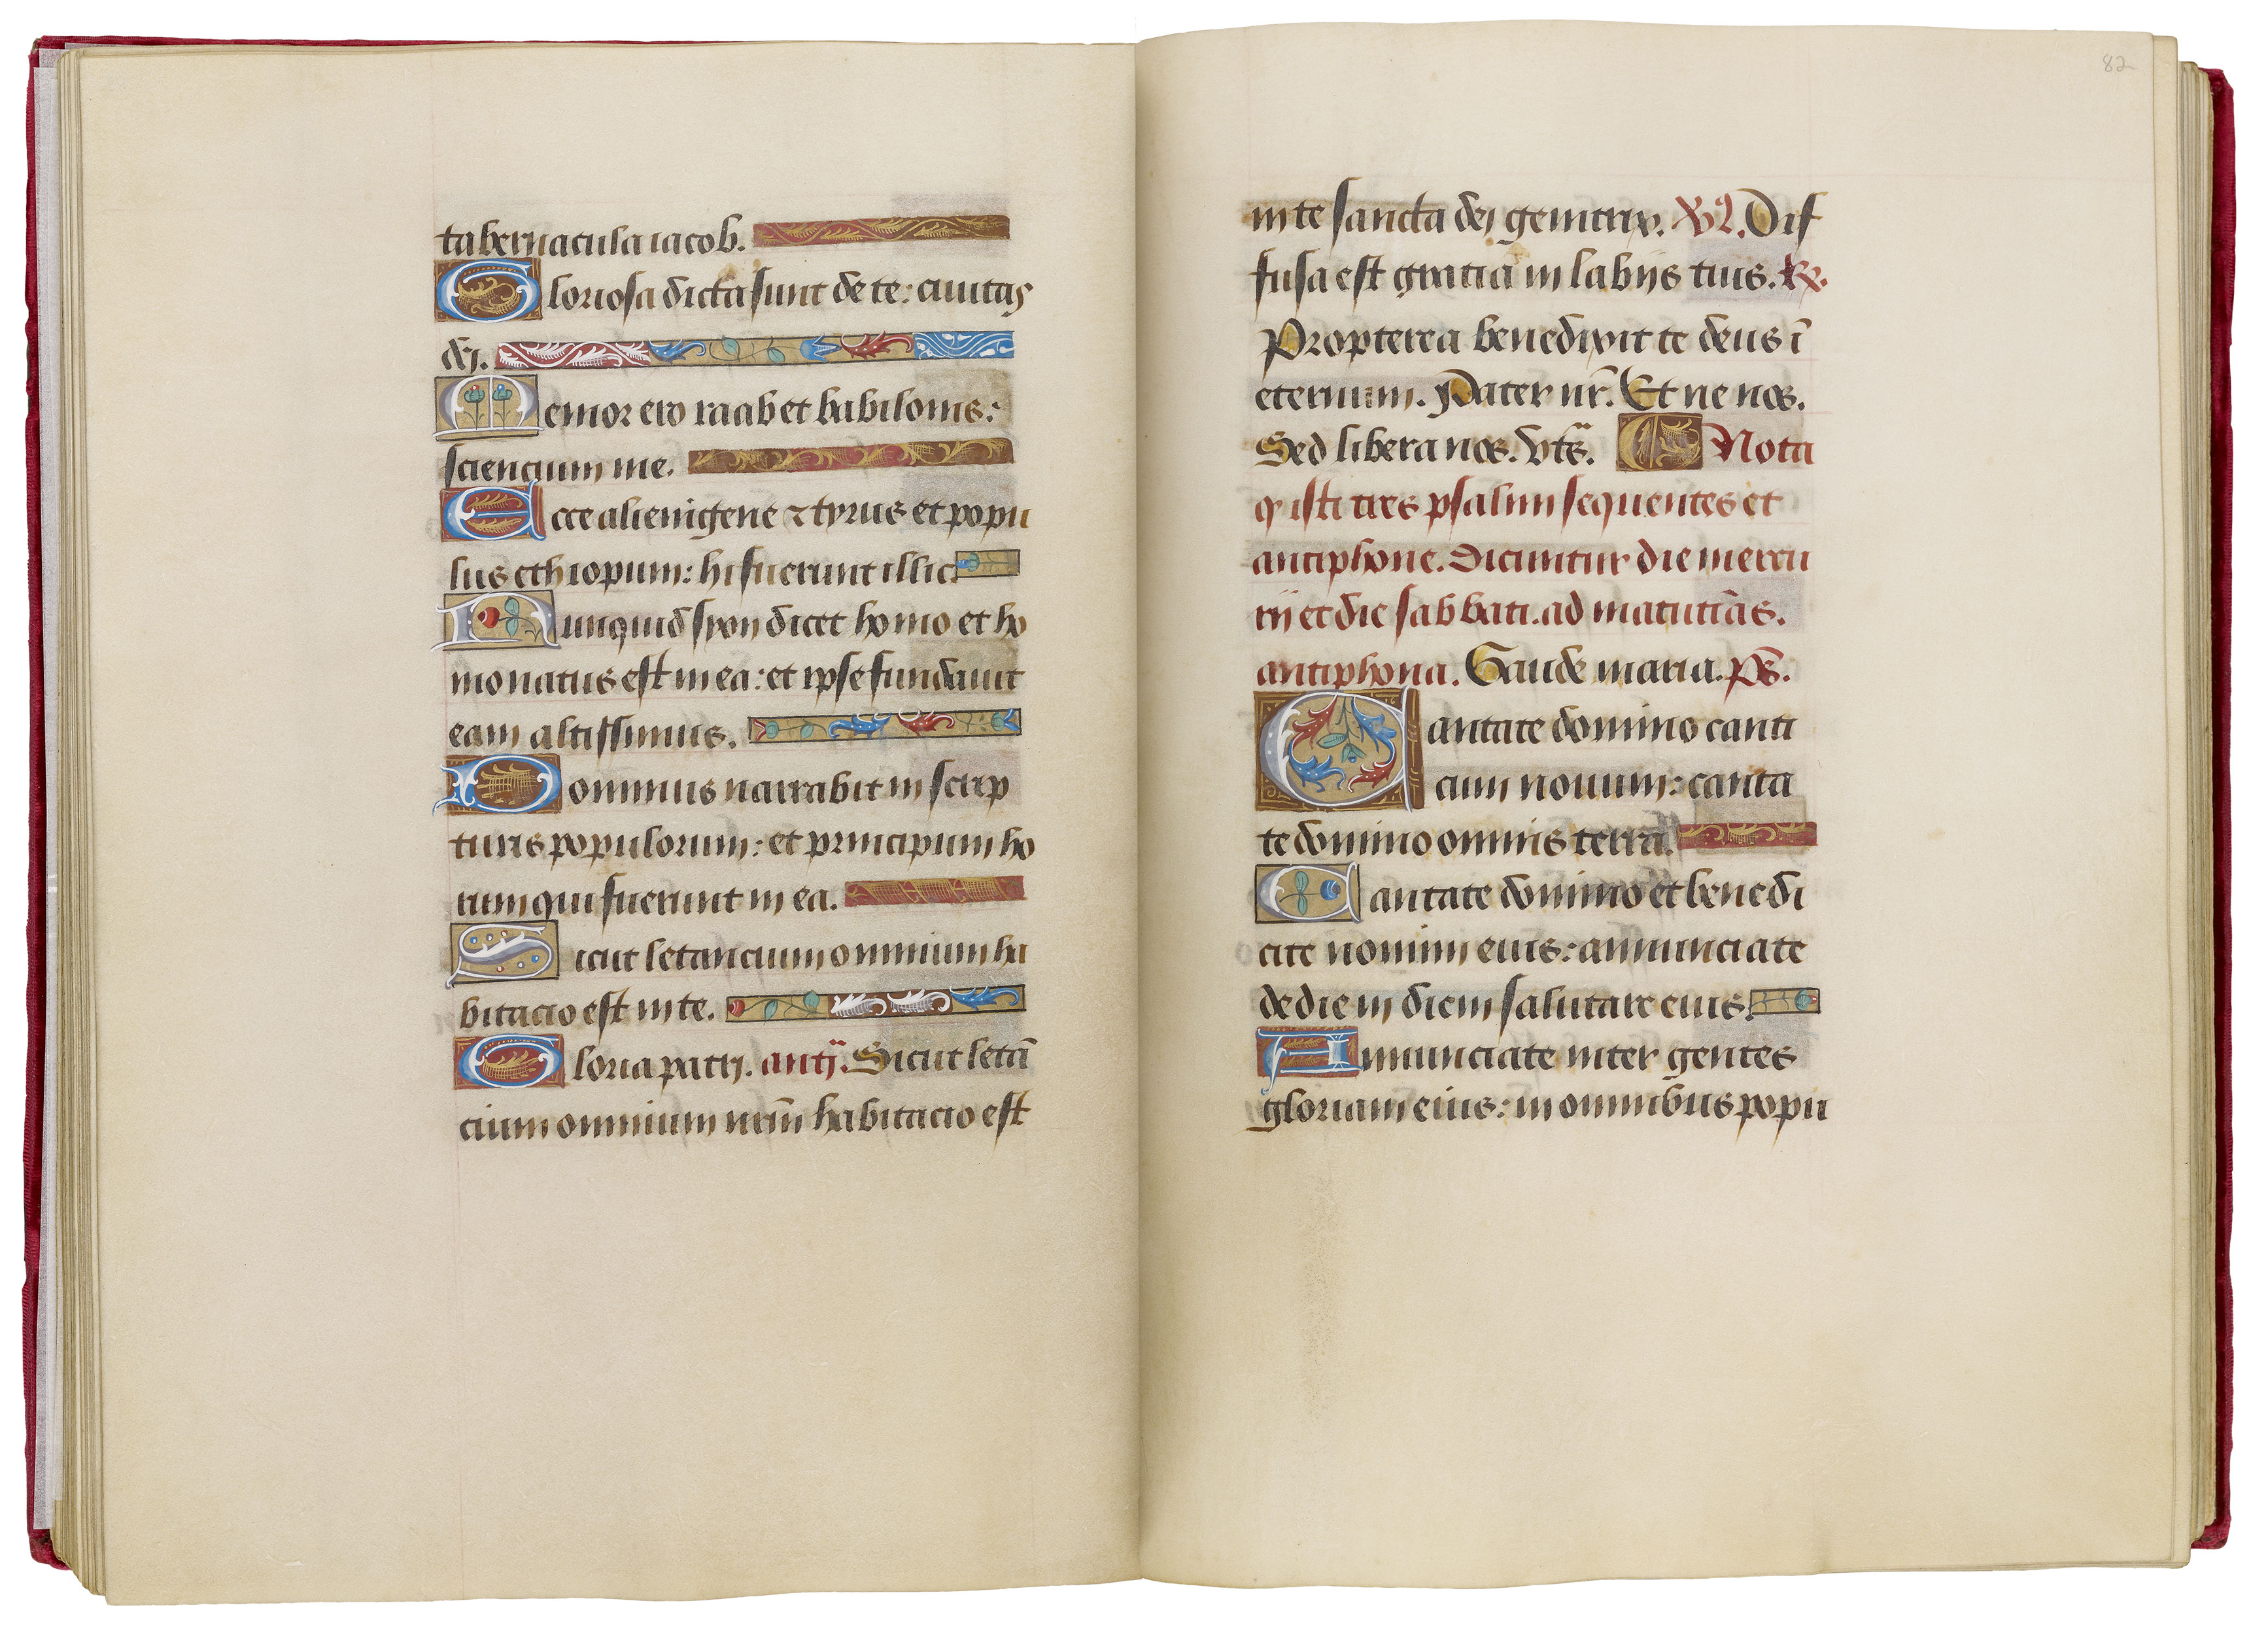 tabernacula iacob.
Gloriosa dicta sunt de te: ciuitas
dei.
Memor ero raab et babilonis:
sciencium me.
Ecce alienigene ⁊ tyrus et popu
lus ethiopum: hi fuerunt illic.
Nunquid syon dicet homo et ho
mo natus est in ea: et ipse fundauit
eam altissimus.
Dominus narrabit in scrip
turis populorum: et principum ho
rum qui fuerunt in ea.
Sicut letancium omnium ha
bitacio est in te.
Gloria patri. antĩ. Sicut letā
cium omnium nr̄m habitacio est
82
in te sancta dei genitrix. Vs. Dif
fusa est gratia in labijs tuis. R̸.
Propterea benedixit te deus ī
eternum. Pater nr̄. Et ne nos.
Sed libera nos. vts̄. C Nota
ꝙ isti tres psalmi sequentes et
antiphone. Dicuntur die mercu
rij et die sabbati. ad matutīas.
antiphona. Gaude maria. ps̄.
Cantate domino canti
cum nouum: canta
te domino omnis terra.
Cantate domino et benedi
cite nomini eius: annunciate
de die in diem salutare eius.
Annunciate inter gentes
gloriam eius: in omnibus popu